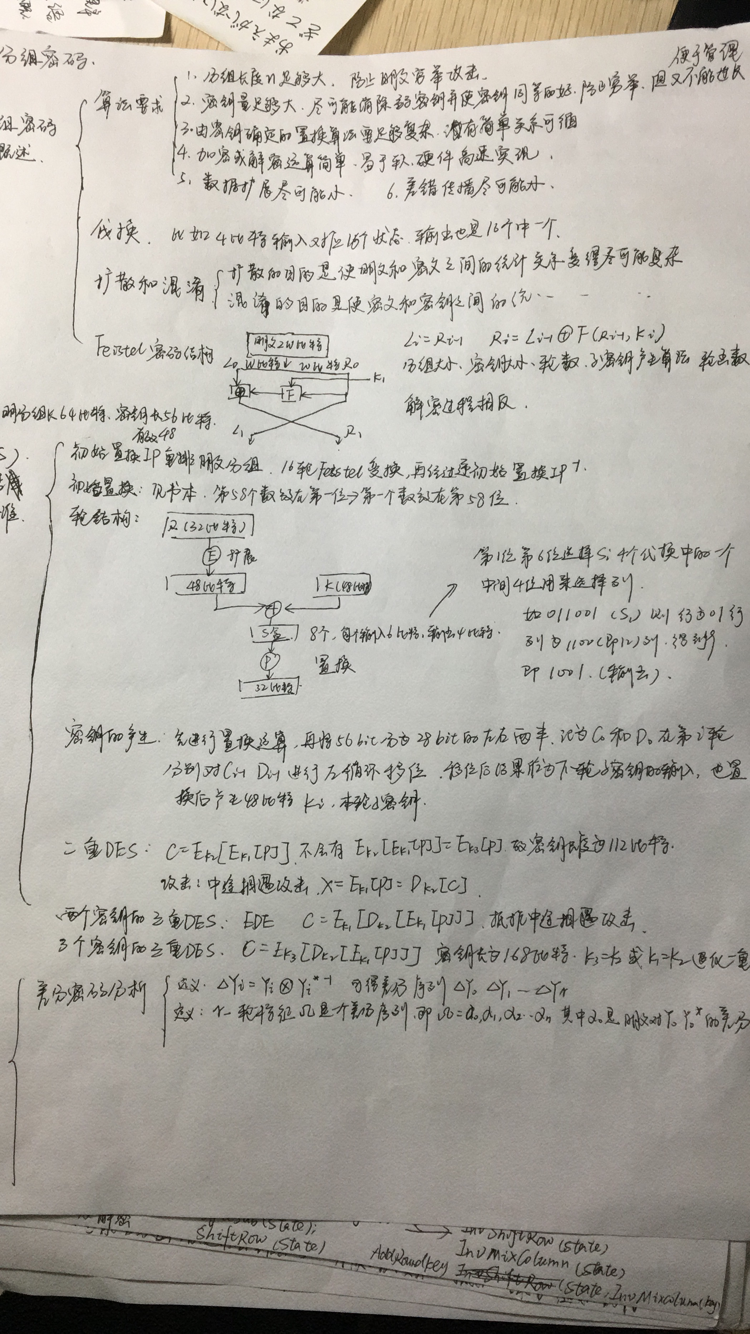 分组密码.
便于管理
算法要求
1. 分组长度n足够大, 防止明文穷举攻击.
2. 密钥量足够大, 尽可能消除弱密钥并使密钥同等的好, 防止穷举, 但又不能过长
3. 由密钥确定的置换算法要足够复杂, 没有简单关系可循
4. 加密或解密运算简单, 易于软、硬件高速实现.
5. 数据扩展尽可能小. 6. 差错传播尽可能小.
组密码
概述.
代换. 比如4比特输入对应16个状态, 输出也是16个中一个.
扩散和混淆
扩散的目的是使明文和密文之间的统计关系变得尽可能复杂
混淆的目的是使密文和密钥之间的统……
Feistel密码结构
明文2w比特
L₀ w比特 w比特 R₀
K₁
F
L₁ R₁
Li=Ri-1 Ri=Li-1⊕F(Ri-1,Ki)
分组大小、密钥大小、轮数、子密钥产生算法 轮函数
解密过程相反.
明分组长64比特, 密钥长56比特.
初始置换IP重排明文分组, 16轮Feistel变换, 再经过逆初始置换IP⁻¹.
初始置换: 见书本. 第58个数放在第一位→第一个数放在第58位.
轮结构:
R(32比特)
E 扩展
48比特 K(48比特)
S盒 8个, 每个输入6比特, 输出4比特.
P 置换
32比特
第1位第6位选择Si 4个代换中的一个
中间4位用来选择列.
如011001 (S₁) 则行为01行
列为1100(即12)列. 得到9
即1001. (输出).
密钥的产生: 先进行置换运算, 再将56bit分为28bit的左右两半, 记为C₀和D₀ 在第i轮
分别对Ci-1 Di-1进行左循环移位. 移位后结果作为下一轮子密钥的输入, 也置
换后产生48比特Ki, 本轮子密钥.
二重DES: C=Ek₂[Ek₁[P]] 不会有Ek₂[Ek₁[P]]=Ek₃[P] 故密钥长度为112比特.
攻击: 中途相遇攻击. X=Ek₁[P]=Dk₂[C]
两个密钥的三重DES. EDE C=Ek₁[Dk₂[Ek₁[P]]]. 抵抗中途相遇攻击.
3个密钥的三重DES. C=Ek₃[Dk₂[Ek₁[P]]] 密钥长为168比特. k₃=k₂或k₁=k₂退化一重
差分密码分析
定义. △Yi=Yi⊗Yi*⁻¹ 可得差分序列△Y₀ △Y₁…△Yr
定义: r-轮特征Ω是一个差分序列, 即Ω=α₀,α₁,α₂…αr 其中α₀是明文对Y₀ Y₀*的差分
ShiftRow(State)
InvShiftRow(State)
InvMixColumn(State)
AddRoundKey